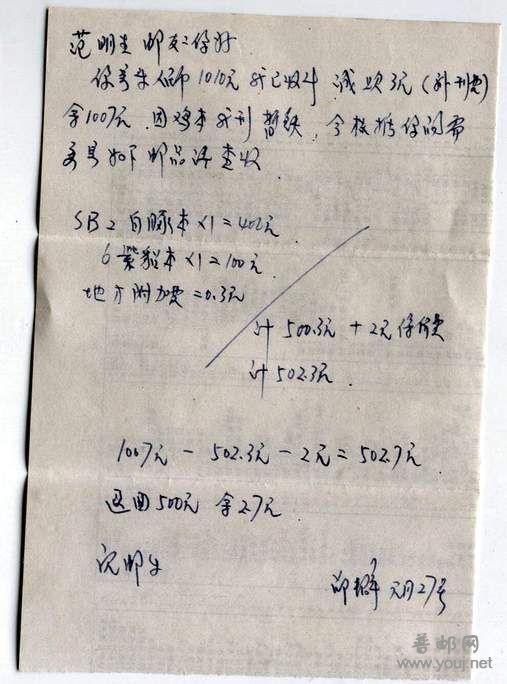 范明生邮友:你好
你寄来人民币1010元我已收到 减欠3元(补刊费)
余1007元 因鸡本我刊暂缺,今根据你的需
寄呈如下邮品请查收
SB2白豚本×1=402元
6紫貂本×1=100元
地方附加费=0.3元
计500.3元+2元保价费
计502.3元
1007元-502.3元-2元=502.7元
退回500元 余2.7元
祝邮安
元月27号
普邮网
www.youj.net